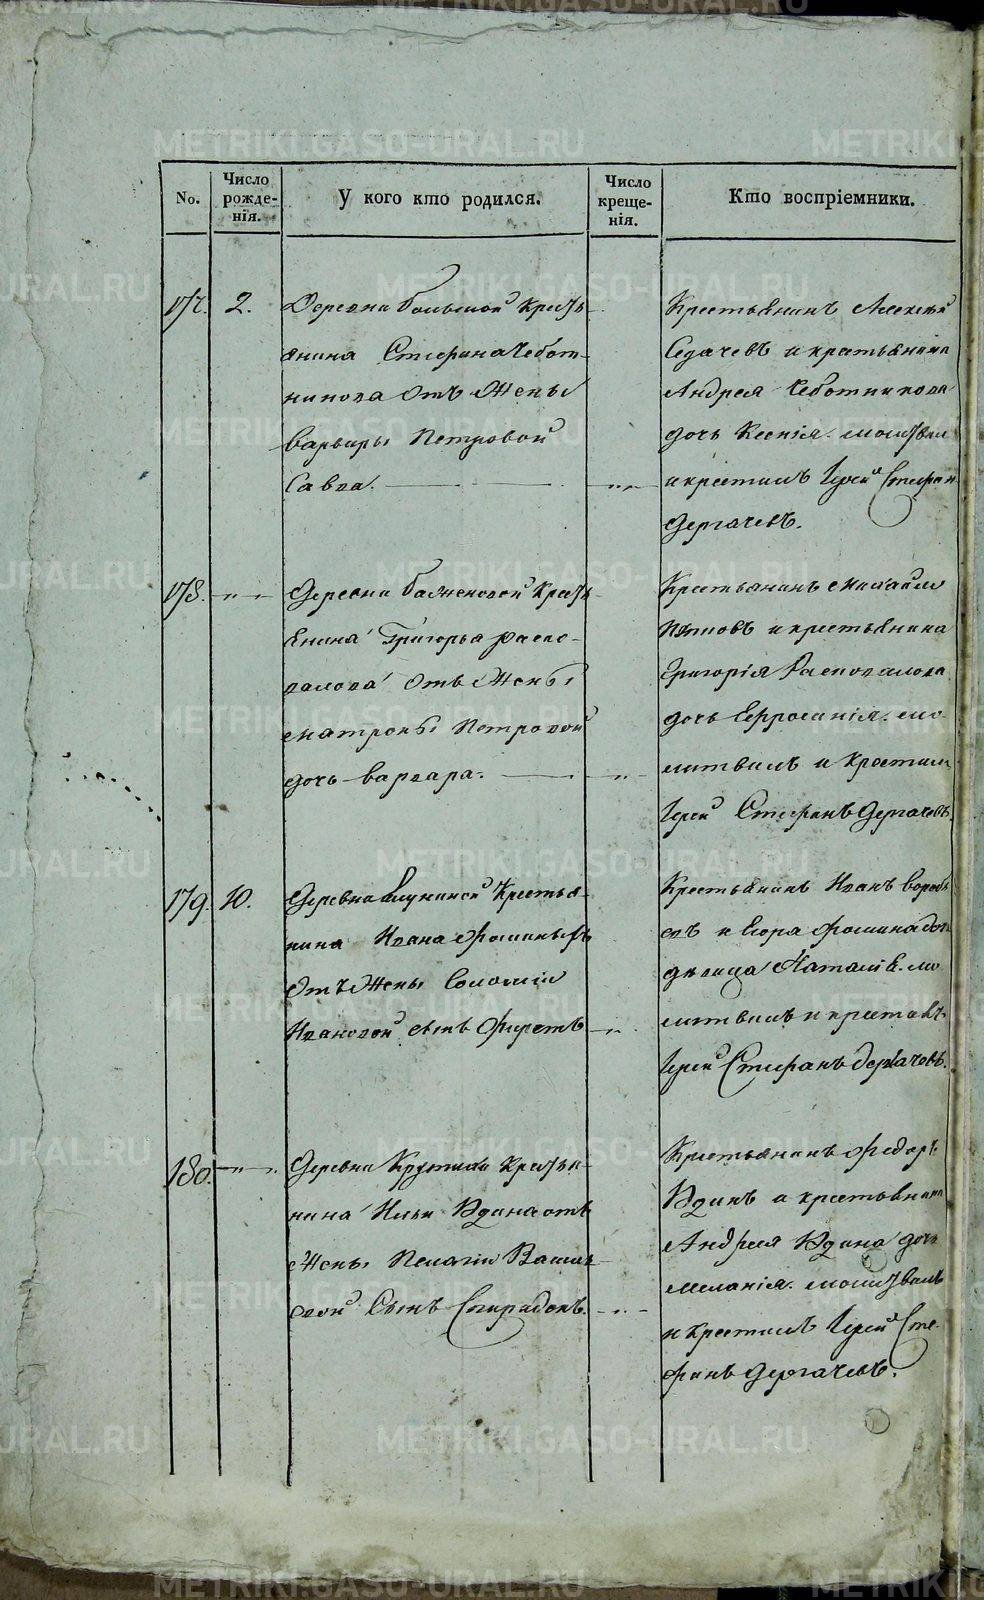 No.
Число рожде-
нія.
У кого кто родился.
Число креще-
нія.
Кто воспріемники.
177. 2.
Деревни большой кресть
янина Стефана Чебот-
никова отъ жены
Варвары Петровой
Савва.
Крестьянинъ Алексѣй
Седачевъ и крестьянина
Андрея Чеботникова
дочь Ксенія. молитвил
и крестилъ Іерей Стефан
Дергачевъ.
178.
Деревни Баженовой кресть
янина Григорья Распо-
палова отъ жены
Матроны Петровой
дочь Варвара.
Крестьянинъ Михайло
и крестьянина
Григорія Распопалова
дочь Ефросинія. мо-
литвилъ и крестилъ
Іерей Стефанъ Дергачевъ.
179. 10.
Деревни крестья-
нина Ивана Фоминыхъ
отъ жены Соломіи
Ивановой сынъ Фирстъ
Крестьянинъ Иванъ Воробь
евъ и Фомина
дѣвица Наталія. мо
литвилъ и крестилъ
Іерей Стефанъ Дергачевъ.
180.
Деревни кресть-
нина Ильи Юдина отъ
жены Пелагіи Василь
евой Сынъ Спиридонъ.
Крестьянинъ Федоръ
Юдинъ и крестьянина
Андрея Юдина дочь
Меланія. молитвилъ
и крестилъ Іерей Сте-
фанъ Дергачевъ.
METRIKI.GASO-URAL.RU